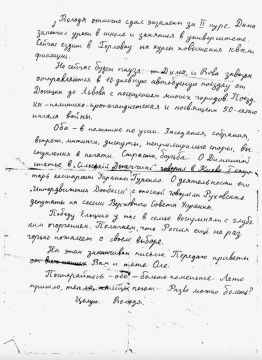 Володя отлично сдал экзамены за II курс. Дима
закончил уроки в школе и занятия в университете.
Сейчас ездит в Горловку на курсы повышения квали
фикации.
Но сейчас будет пауза: Дима и Вова завтра
отправляются в 10-дневную автобусную поездку от
Донецка до Львова с посещением многих городов. Поезд
ка - политико-пропагандистская и посвящена 50-летию
начала войны.
Оба - в политике по уши. Заседания, собрания,
встречи, митинги, диспуты, непримиримые споры, вы
ступления в печати. Страсти, борьба. О Диминой
статье в "Сельской Донетчине" говорил в Киеве I секре
тарь компартии Украины Гуренко. О деятельности его
"Интердвижения Донбасса" с тоской говорили Руховские
депутаты на сессии Верховного Совета Украины.
Победу Ельцина у нас в семье восприняли с глубо
ким огорчением. Полагаем, что Россия ещё не раз
горько пожалеет о своём выборе.
На этом заканчиваю письмо. Передаю приветы
Вам и тете Оле.
Постарайтесь оба болеть поменьше. Лето
пришло, тепло, пошли. Разве можно болеть?
Целую. Володя.